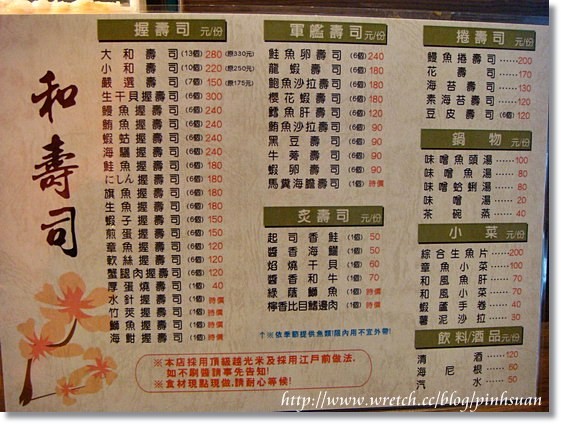 和壽司
握壽司 元/份
大和壽司(13個)280(原330元)
小和壽司(10個)220(原250元)
嚴選壽司(7個)150(原175元)
生干貝握壽司(6個)340
鰻魚握壽司(6個)240
鮪魚握壽司(6個)
蝦蛄握壽司(6個)
海鱺握壽司(6個)
鮭魚握壽司(6個)
にしん握壽司(6個)
旗魚握壽司(6個)
生魚握壽司(6個)
蝦子握壽司(6個)
煎蛋握壽司(6個)
章魚握壽司(6個)
軟絲握壽司(6個)
蟹腿肉握壽司(6個)
厚蛋燒壽司(1個)40
水針握壽司(1個)時價
竹筴握壽司(1個)時價
鰤魚握壽司(1個)時價
海鮒握壽司(1個)時價
※本店採用頂級越光米及採用江戶前做法,
如不刷醬請事先告知!
※食材現點現做,請耐心等候!
軍艦壽司 元/份
鮭魚卵壽司(6個)240
龍蝦壽司(6個)180
鮑魚沙拉壽司(6個)180
櫻花蝦壽司(6個)180
鱈魚肝壽司(6個)120
鮪魚沙拉壽司(6個)90
黑豆壽司(6個)90
牛蒡壽司(6個)90
蝦卵壽司(6個)90
馬糞海膽壽司(1個)時價
炙壽司 元/份
起司香鮭(1個)50
醬香海鱺(1個)50
焰燒干貝(1個)60
醬香和牛(1個)70
綠蔭鰤魚(1個)時價
檸香比目鰭邊肉(1個)時價
↑※依季節提供魚類!限內用不宜外帶!
捲壽司 元/份
鰻魚捲壽司200
花壽司170
海苔壽司130
素海苔壽司120
豆皮壽司(6個)120
鍋物 元/份
味噌魚頭湯100
味噌魚湯80
味噌蛤蜊湯50
味噌湯20
茶碗蒸40
小菜 元/份
綜合生魚片200
章魚小菜100
和風魚肝100
和風小菜70
蝦蘆手卷40
薯泥沙拉30
飲料/酒品 元/份
清酒120
海尼根80
汽水50
http://www.wretch.cc/blog/pinhsuan